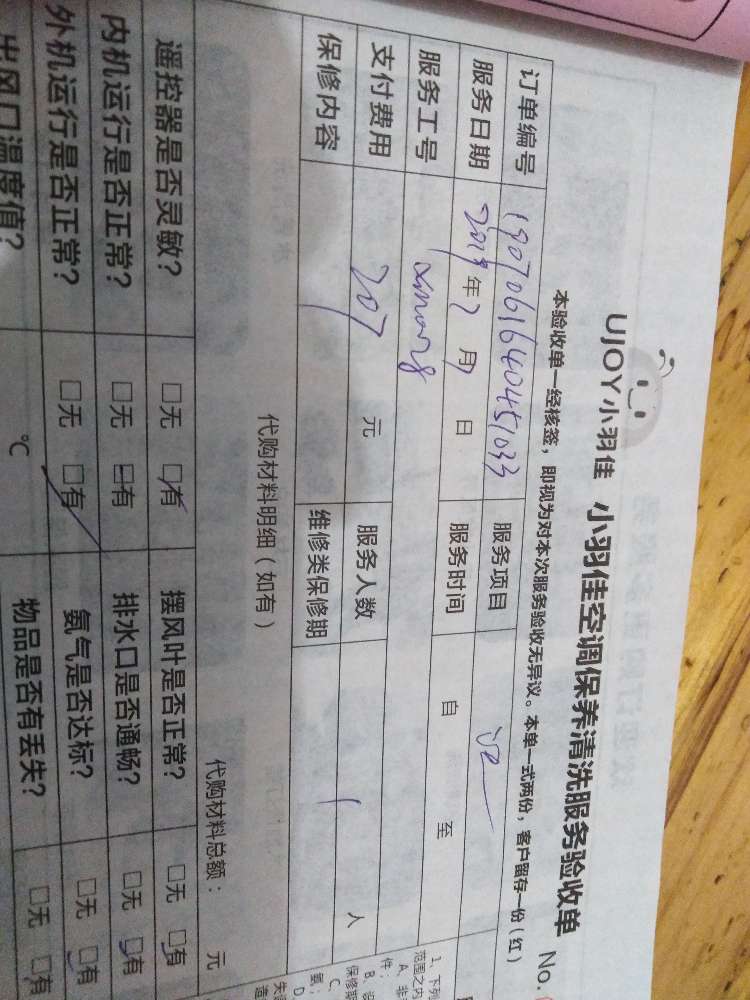 UJOY小羽佳 小羽佳空调保养清洗服务验收单 No.
本验收单一经核签，即视为对本次服务验收无异议。本单一式两份，客户留存一份(红)
订单编号 1907061640451033 服务项目
服务日期 2019年7月7日 服务时间 自 至
服务工号
支付费用 207 元 服务人数 1 人
保修内容 维修类保修期
代购材料明细（如有） 代购材料总额： 元
遥控器是否灵敏？ □无 □有 摆风叶是否正常？ □无 □有
内机运行是否正常？ □无 □有 排水口是否通畅？ □无 □有
外机运行是否正常？ □无 □有 氨气是否达标？ □无 □有
出风口温度值？ ℃ 物品是否有丢失？ □无 □有
1、下列
范围之内
A、非
件；
B、误
保修期
C、
氨；
D、